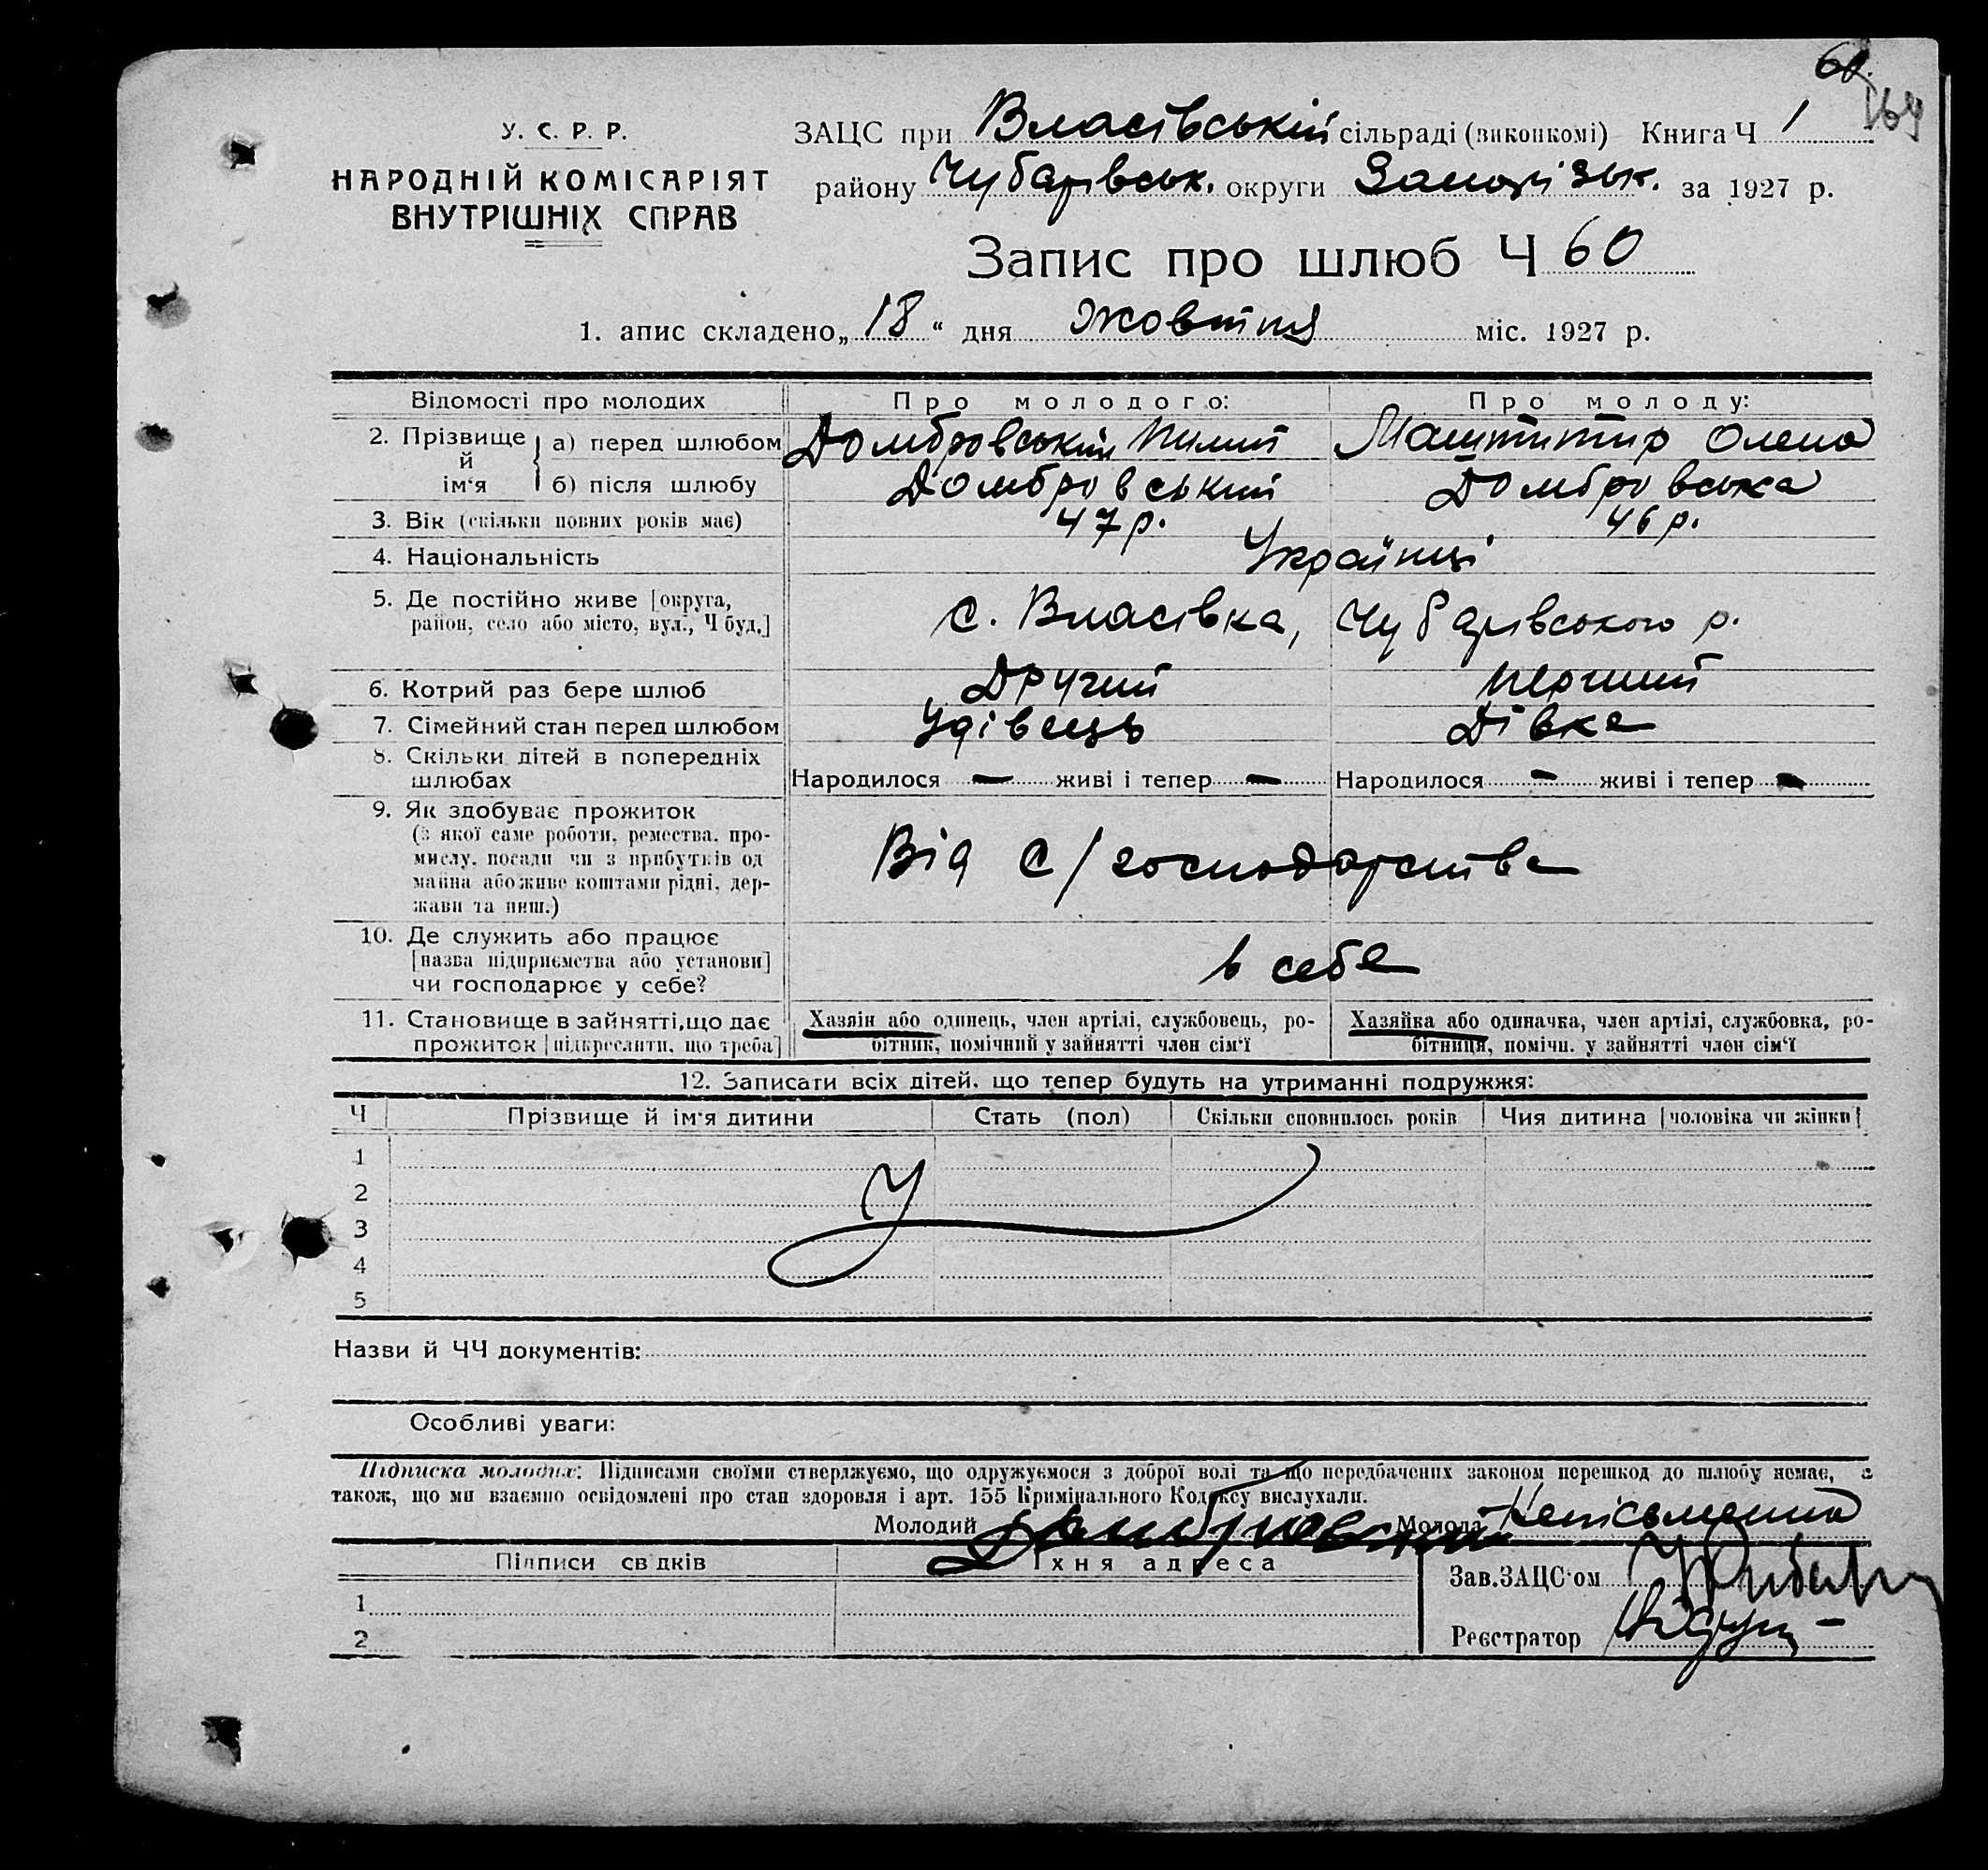 60.
164
У. С. Р. Р.
НАРОДНІЙ КОМІСАРІЯТ
ВНУТРІШНІХ СПРАВ
ЗАЦС при Власівській сільраді (виконкомі) Книга Ч 1
району Чубарівськ. округи Запорізьк. за 1927 р.
Запис про шлюб Ч 60
1. апис складено „18“ дня жовтня міс. 1927 р.
Відомості про молодих Про молодого: Про молоду:
2. Прізвище й ім‘я а) перед шлюбом Домбровський Пилип Маштитир Олена
б) після шлюбу Домбровський Домбровська
3. Вік (скільки повних років має) 47 р. 46 р.
4. Національність Українці
5. Де постійно живе [округа, район, село або місто, вул., Ч буд.] с. Власівка, Чубарівського р.
6. Котрий раз бере шлюб Другий перший
7. Сімейний стан перед шлюбом Удівець Дівка
8. Скільки дітей в попередніх шлюбах Народилося — живі і тепер — Народилося — живі і тепер —
9. Як здобуває прожиток
(з якої саме роботи, ремества, про-
мислу, посади чи з прибутків од
майна або живе коштами рідні, дер-
жави та инш.)
Від с/господарства
10. Де служить або працює
[назва підприємства або установи]
чи господарює у себе?
в себе
11. Становище в зайнятті, що дає
прожиток [підкреслити, що треба]
Хазяїн або одинець, член артілі, службовець, ро-
бітник, помічний у зайнятті член сім‘ї
Хазяйка або одиначка, член артілі, службовка, ро-
бітниця, помічн. у зайнятті член сім‘ї
12. Записати всіх дітей, що тепер будуть на утриманні подружжя:
Ч Прізвище й ім‘я дитини Стать (пол) Скільки сповнилось років Чия дитина [чоловіка чи жінки]
1
2
3
4
5
Назви й ЧЧ документів:
Особливі уваги:
Підписка молодих: Підписами своїми стверджуємо, що одружуємося з доброї волі та що передбачених законом перешкод до шлюбу немає, а
також, що ми взаємно освідомлені про стан здоровля і арт. 155 Кримінального Кодексу вислухали.
Молодий Домбровский Молода Неписьменна
Підписи свідків Їхня адреса
Зав. ЗАЦС‘ом
1
Реєстратор
2